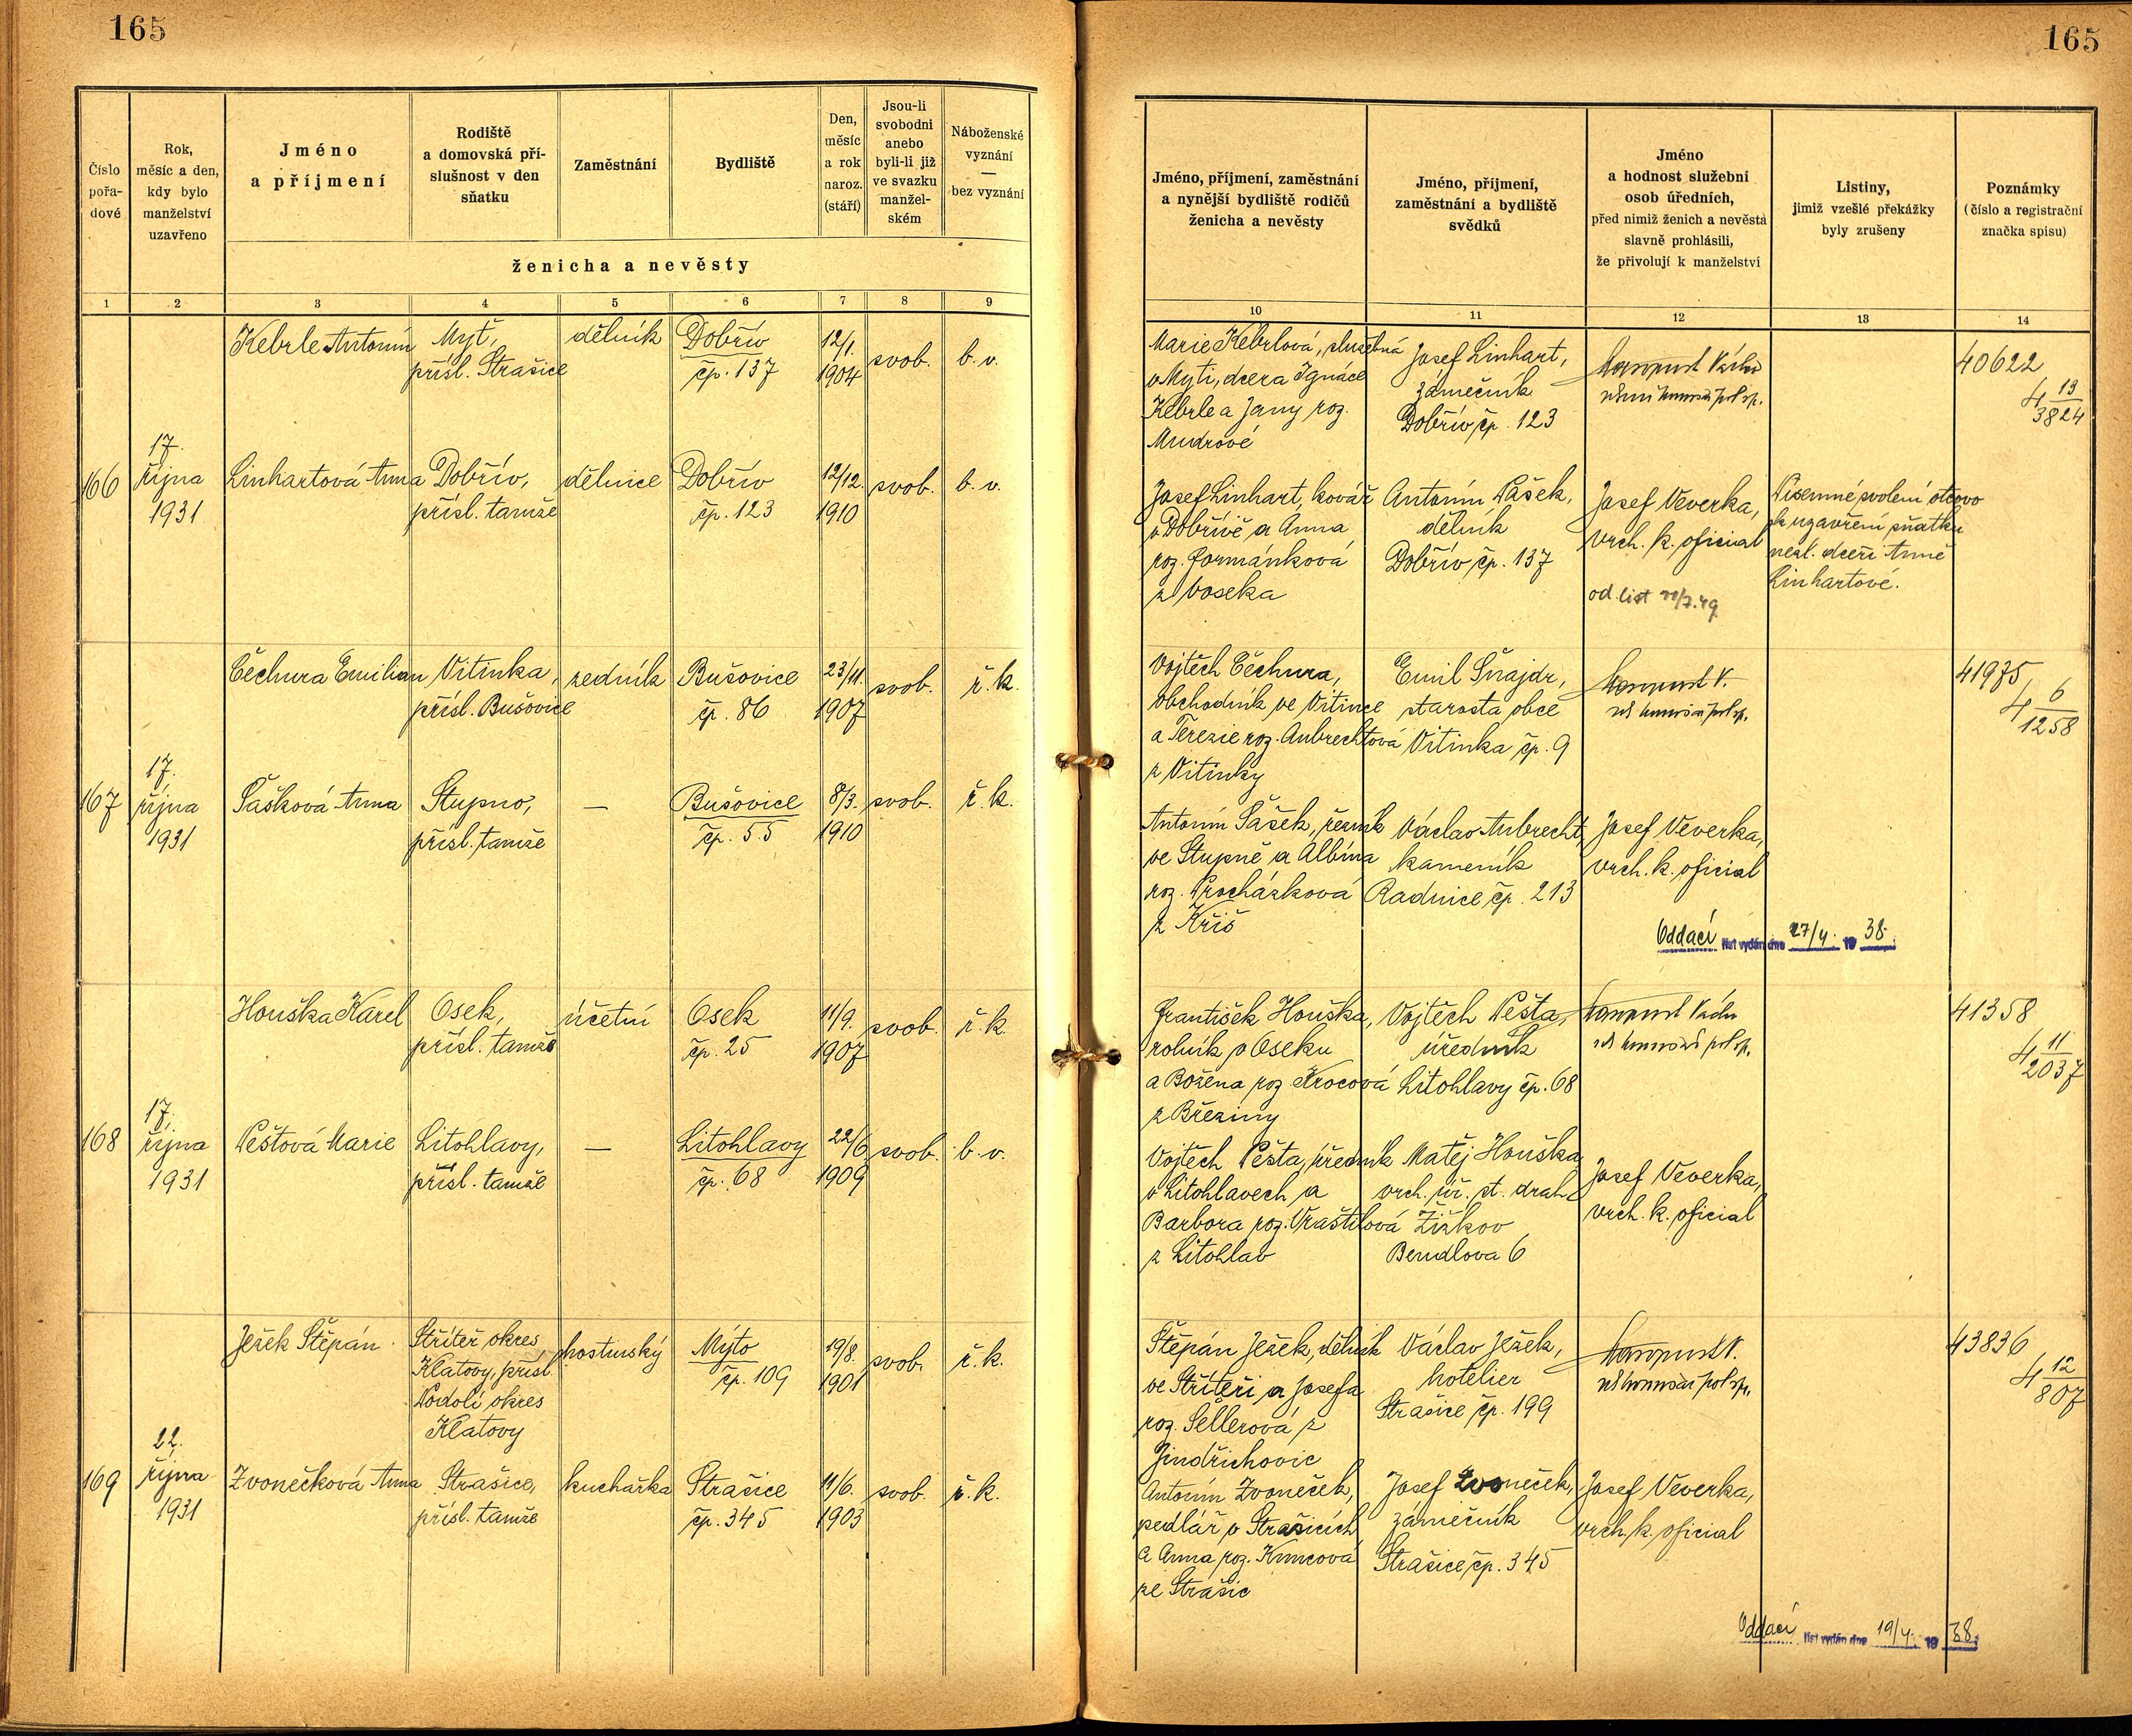 165
Číslo
pořa-
dové
Rok,
měsíc a den,
kdy bylo
manželství
uzavřeno
Jméno
a příjmení
Rodiště
a domovská pří-
slušnost v den
sňatku
Zaměstnání
Bydliště
Den,
měsíc
a rok
naroz.
(stáří)
Jsou-li
svobodni
anebo
byli-li již
ve svazku
manžel-
ském
Náboženské
vyznání
—
bez vyznání
ženicha a nevěsty
1 2 3 4 5 6 7 8 9
Kebrle Antonín
Mýt,
přísl. Strašice
dělník
Dobřív
čp. 137
12/1.
1904
svob.
b. v.
166
17.
října
1931
Linhartová Anna
Dobřív,
přísl. tamže
dělnice
Dobřív
čp. 123
12/12.
1910
svob.
b. v.
Čechura Emilian
Vitinka,
přísl. Bušovice
zedník
Bušovice
čp. 86
23/11.
1907
svob.
ř. k.
167
17.
října
1931
Šašková Anna
Stupno,
přísl. tamže
—
Bušovice
čp. 55
8/3.
1910
svob.
ř. k.
Houška Karel
Osek,
přísl. tamže
účetní
Osek
čp. 25
11/9.
1907
svob.
ř. k.
168
17.
října
1931
Peštová Marie
Litohlavy,
přísl. tamže
—
Litohlavy
čp. 68
22/6
1909
svob.
b. v.
Ježek Štěpán
Střiteř okres
Klatovy, přísl.
Podolí okres
Klatovy
hostinský
Mýto
čp. 109
19/8.
1901
svob.
ř. k.
169
22.
října
1931
Zvonečková Anna
Strašice,
přísl. tamže
kuchařka
Strašice
čp. 345
11/6.
1903
svob.
ř. k.
165
Jméno, příjmení, zaměstnání
a nynější bydliště rodičů
ženicha a nevěsty
Jméno, příjmení,
zaměstnání a bydliště
svědků
Jméno
a hodnost služební
osob úředních,
před nimiž ženich a nevěsta
slavně prohlásili,
že přivolují k manželství
Listiny,
jimiž vzešlé překážky
byly zrušeny
Poznámky
(číslo a registrační
značka spisu)
10 11 12 13 14
Marie Kebrlová, služebná
v Mýtě, dcera Ignáce
Kebrle a Jany roz.
Mudrové
Josef Linhart,
zámečník
Dobřív čp. 123
40622
4 13
3824
Josef Linhart, kovář
v Dobřívě a Anna
roz. Formánková
z Voseka
Antonín Pašek,
dělník
Dobřív čp. 137
Josef Veverka,
vrch. k. oficial
od. list
Písemné svolení otcovo
k uzavření sňatku
nezl. dceři Anně
Linhartové.
Vojtěch Čechura,
obchodník ve Vitince
a Terezie roz. Aubrechtová
z Vitinky
Emil Šnajdr,
starosta obce
Vitinka čp. 9
41975
4 6
1258
Antonín Šašek, řezník
ve Stupně a Albína
roz. Procházková
z Kříš
Václav Aubrecht,
kameník
Radnice čp. 213
Josef Veverka,
vrch. k. oficial
Oddací list vydán dne 27/4. 19 38.
František Houška,
rolník v Oseku
a Božena roz. Krocová
z Březiny
Vojtěch Pešta,
úředník
Litohlavy čp. 68
41358
4 11
2037
Vojtěch Pešta, úředník
v Litohlavech a
Barbora roz. Vraštilová
z Litohlav
Matěj Houška
vrch. úř. st. drah
Žižkov
Bendlova 6
Josef Veverka,
vrch. k. oficial
Štěpán Ježek, dělník
ve Střiteři a Josefa
roz. Sellerová z
Jindřichovic
Václav Ježek,
hotelier
Strašice čp. 199
43836
4 12
807
Antonín Zvoneček,
pedlář v Strašicích
a Anna roz. Kuncová
ze Strašic
Josef Zvoneček,
zámečník
Strašice čp. 345
Josef Veverka,
vrch. k. oficial
Oddací list vydán dne 19/4. 19 38.